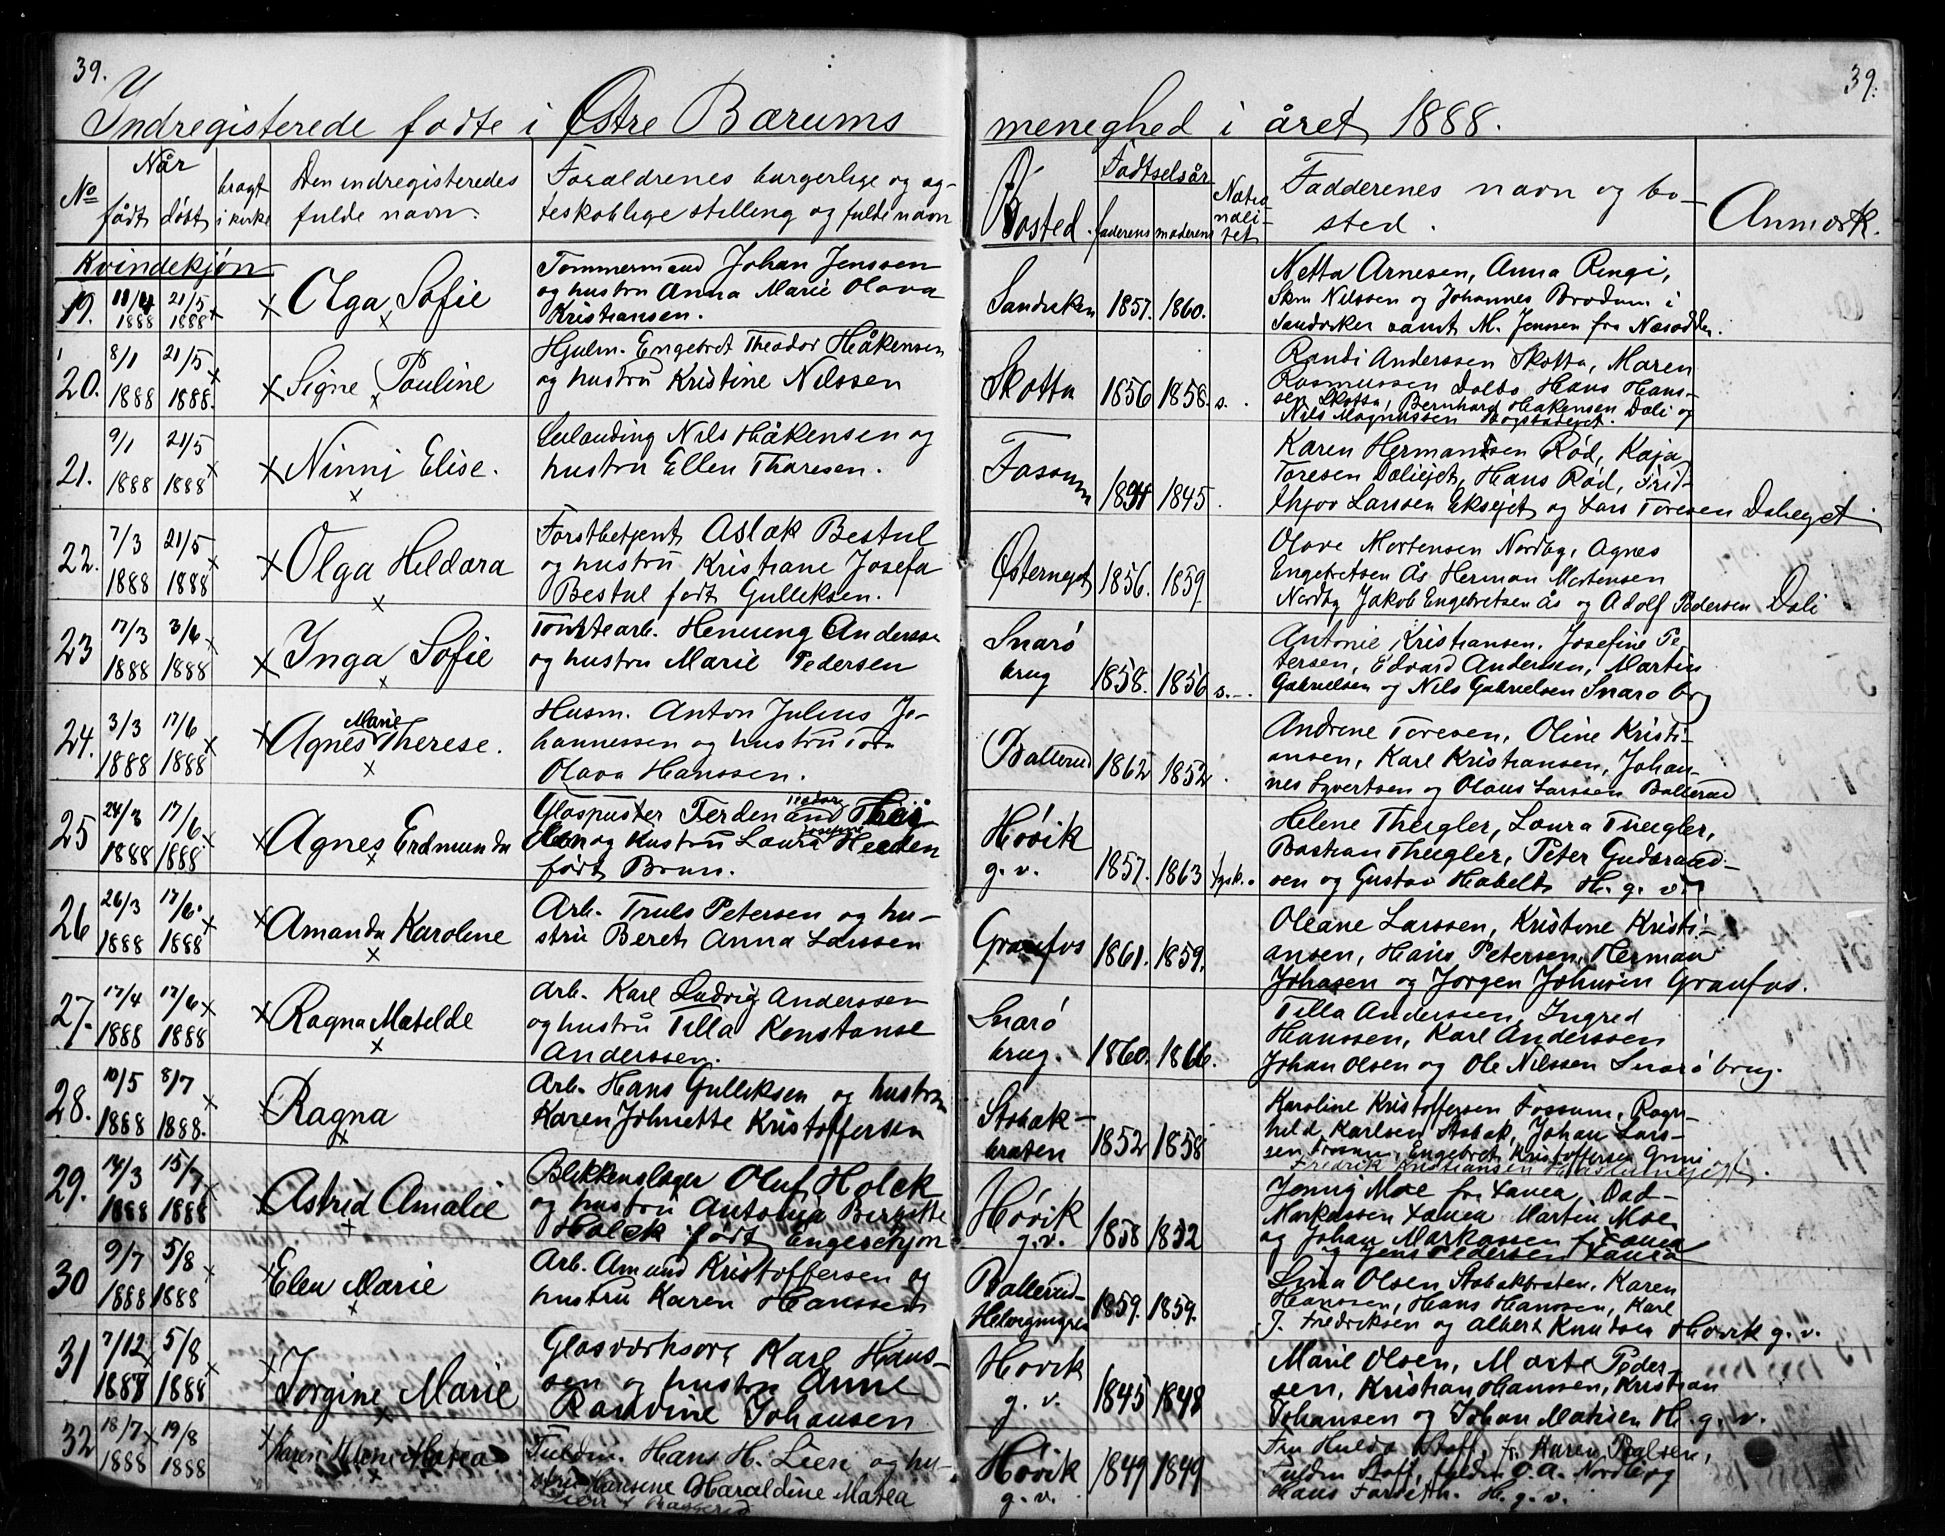 39.
39.
Indregisterede fødte i Østre Bærums
meneghed i året 1888.
No
Når
født
døbt
bragt
i kirke
Den indregisteredes
fulde navn.
Forældrenes borgerlige og æg-
teskablige stilling og fulde navn
Bosted.
Fødtselsår
faderens
moderens
Natio
nali-
tet
Fadderenes navn og bo-
sted.
Anmærk.
Kvindekjøn
19.
21/5
1888
1888
Olga Sofie
Tømmermand Johan Jenssen
og hustru Anna Marie Olava
Kristiansen.
Sandviken
1857.
1860.
Netta Arnesen, Anna Ringi,
Nilssen og Johannes Brodum i
Sandviken samt M. Jenssen fra Næsodden.
20.
8/1
1888
21/5
1888.
Signe Pauline
Hjulm. Engebret Theodor Håkensen
og hustru Kristine Nilssen
Skotta
1856
1858.
s.
Randi Anderssen Skotta, Maren
Rasmussen Dalbo, Hans Hans-
sen Skotta, Bernhard Håkensen Dæli og
Nils Magnussen
21.
9/1
1888
21/5
1888
Ninni Elise.
Nils Håkensen og
hustru Ellen Thoresen.
Fossum
1845
Karen Hermansen Rød, Kaja
Toresen Dæliejet, Hans Rød, Frid-
thjov Larssen Eksejet og Lars Toresen Dæliejet
22.
7/3
1888
21/5
1888
Olga Heldora
Forstbetjent Aslak Bestul
og hustru Kristiane Josefa
Bestul født Gulliksen.
Østernejet
1856.
1859
Olave Mortensen Nordby, Agnes
Engebretsen Ås Herman Mortensen
Nordby Jakob Engebretsen Ås og Adolf Pedersen Dæli
23
17/3
1888
3/6
1888
Inga Sofie
Tomtearb. Henning Anderssen
og hustru Marie Pedersen
Snarø
brug
1858.
1856
s.
Antonie Kristiansen, Josefine Pe-
tersen, Edvard Andersen, Martin
Gabrielsen og Nils Gabrielsen Snarø brg
24.
3/3
1888
17/6
1888
Marie
Agnes Therese.
Husm. Anton Julius Jo-
hannessen og hustru Tora
Olava Hanssen.
Ballerud
1862
1852
Andrine Toresen, Oline Kristi-
ansen, Karl Kristiansen, Johan-
nes Syvertsen og Olaus Larssen Ballerud
25
24/3
1888
17/6
1888
Agnes Erdmunda
Glaspuster Ferdenand
og hustru Laura
født Brun.
Høvik
g. v.
1857.
1863
tysk.
Helene Theigler, Laura Theigler,
Bastian Theigler, Peter Gudbrand-
sen og Gustav Habelt H. g. v.
26
26/3
1888
17/6
1888
Amanda Karoline
Arb. Truls Petersen og hu-
stru Beret Anna Larssen
Granfos
1861.
1859.
Oleane Larssen, Kristine Kristi-
ansen, Hans Petersen, Herman
Johasen og Jørgen Johnsen Granfos.
27.
17/4
1888
17/6
1888
Ragna Matelde
Arb. Karl Ludvig Anderssen
og hustru Tilla Konstanse
Anderssen.
Snarø
brug.
1860.
1866.
Tilla Anderssen, Ingred
Hanssen, Karl Anderssen
Johan Olsen og Ole Nilssen Snarø brug.
28.
10/5
1888
8/7
1888.
Ragna
Arb. Hans Gulliksen og hustru
Karen Johnette Kristoffersen
Stabæk-
braten
1852
1858
Karoline Kristoffersen Fossum, Ragn-
hild Karlsen Stabæk, Johan Lars-
sen Fossum, Engebret Kristoffersen Grini og
Fredrik Kristiansen
29.
14/3
1888
15/7
1888
Astrid Amalie
Blikkenslager Oluf Holck
og hustru Antonia Bergitte
Holck født Engeschjøn
Høvik
g.v.
1858
1852
Jenny Moe fr.
Markussen Martin Moe
og Johan Markussen
og Jens Pedersen
30
9/7
1888
5/8
1888
Elen Marie
Arb. Amund Kristoffersen og
hustru Karen Hanssen
Ballerud-
1859.
1859.
Lina Olsen Stabækbråten, Karen
Hanssen, Hans Hanssen, Karl
J. Fredriksen og Albert Knudsen Høvik g. v.
31
7/12
1887
5/8
1888
Jørgine Marie
Glasværksarb. Karl Hans-
sen og hustru Anne
Randine Johansen
Høvik
g. v.
1845
1848
Marie Olsen, Marte Peder-
sen, Kristian Hanssen, Kristian
Johansen og Johan Matisen H. g. v.
32
18/7
1888
19/8
1888
Karen Milene Matea
Fuldm. Hans H. Lien og hu-
stru Hansine Haraldine Matea
Høvik
g. v.
1849
1849
Fru Hulda Stoff, fr. Karen Paalsen,
Fuldm Stoff, fuldm O. A. Nordby og
Hans Forseth. H. g. v.